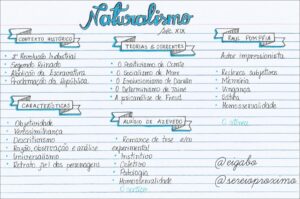 Naturalismo
Séc. XIX
CONTEXTO HISTÓRICO
2ª Revolução Industrial
Segundo Reinado
Abolição da Escravatura
Proclamação da República
TEORIAS & CORRENTES
O Positivismo de Comte
O Socialismo de Marx
O Evolucionismo de Darwin
O Determinismo de Taine
A psicanálise de Freud
RAUL POMPÉIA
Autor impressionista
Relevos subjetivos
Memória
Vingança
Homossexualidade
O ateneu
CARACTERÍSTICAS
Objetividade
Verossimilhança
Descritivismo
Razão, observação e análise
Impessoalismo
Retrato fiel dos personagens
ALUÍSIO DE AZEVEDO
Romance de tese e/ou
experimental
Instintivo
Coletivo
Patologia
Homossexualidade
O cortiço
@eigabo
@sereioproximo